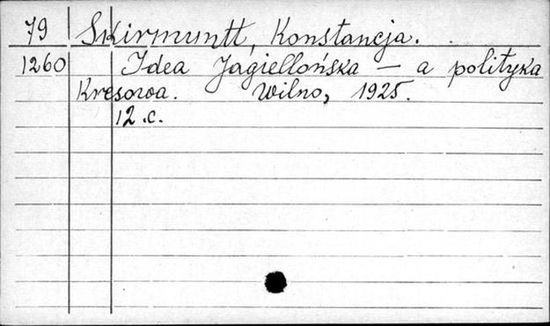 79 Skirmuntt, Konstancja.
1260 Idea Jagiellońska — a polityka
Kresowa. Wilno, 1925.
12.c.